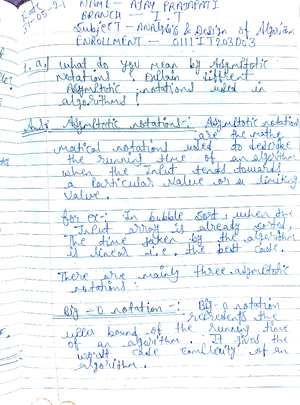 Date
31-05-21
NAME - AJAY PRAJAPATI
BRANCH - I.T
Subject - ANALYSIS & Design of Algorithm
ENROLLMENT - 0111IT203003
1. a)
what do you mean by Asymptotic
notations? Explain different
Asymptotic notations used in
algorithms?
Ans:- Asymptotic notations:- Asymptotic notations
are the mathe
matical notations used to describe
the running time of an algorithm
when the Input tends towards
a particular value or a limiting
value.
for ex:- In bubble sort, when the
Input array is already sorted,
the time taken by the algorithm
is linear i.e. the best case.
There are mainly three asymptotic
notations:
Big-O notation:- Big-O notation
represents the
upper bound of the running time
of an algorithm. It gives the
worst case complexity of an
algorithm.